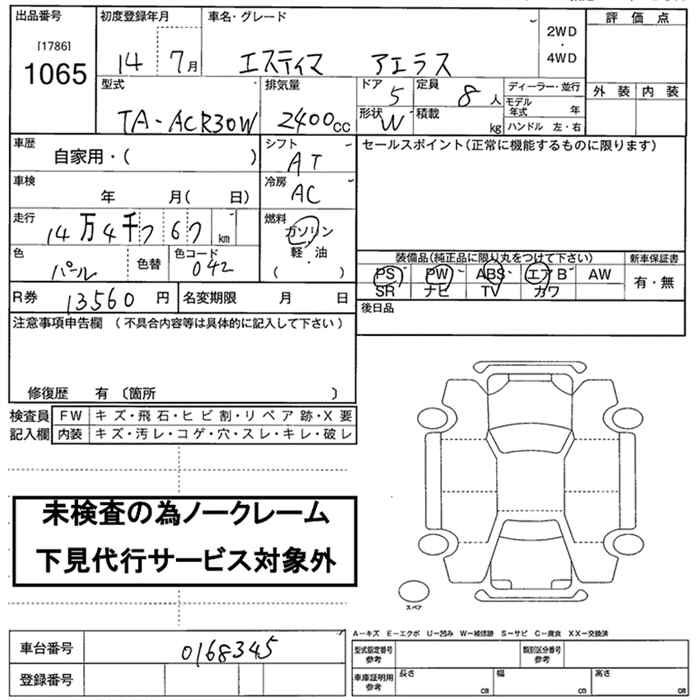 出品番号 初度登録年月 車名・グレード 評価点
[1786]
1065
14 7月 エスティマ アエラス 2WD・4WD
型式 排気量 ドア 定員 ディーラー・並行 外装 内装
TA-ACR30W 2400cc 5 8人 モデル年式 年
形状 W 積載 kg ハンドル 左・右
車歴 シフト セールスポイント(正常に機能するものに限ります)
自家用・( ) AT
車検 冷房
年 月( 日) AC
走行 燃料
14万4千767km ガソリン
軽・油
( )
色 色替 色コード
パール 042
装備品(純正品に限り丸をつけて下さい) 新車保証書
PS PW ABS エアB AW 有・無
SR ナビ TV カワ
R券 13560円 名変期限 月 日
後日品
注意事項申告欄 (不具合内容等は具体的に記入して下さい)
修復歴 有 〔箇所 〕
検査員 FW キズ・飛石・ヒビ割・リペア跡・X要
記入欄 内装 キズ・汚レ・コゲ・穴・スレ・キレ・破レ
未検査の為ノークレーム
下見代行サービス対象外
スペア
A-キズ E-エクボ U-凹み W-補修跡 S-サビ C-腐食 XX-交換済
車台番号 0168345 型式指定番号参考 類別区分番号参考
登録番号 車庫証明用参考 長さ cm 幅 cm 高さ cm